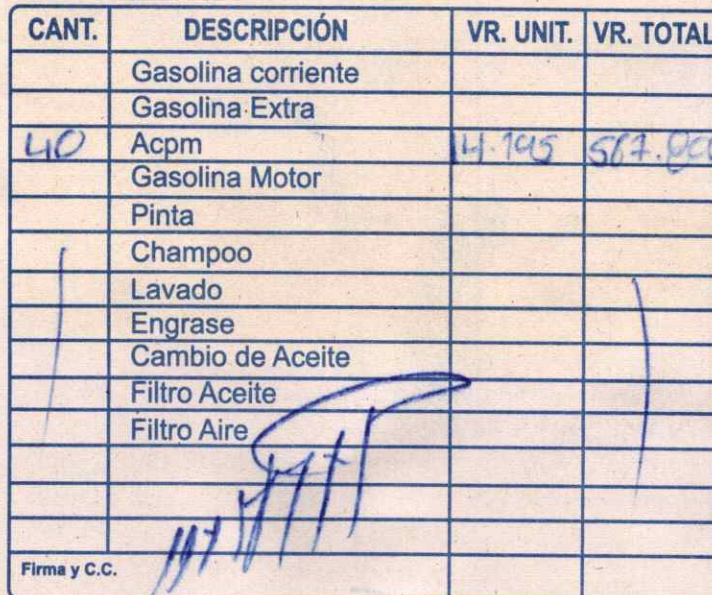 CANT. DESCRIPCIÓN VR. UNIT. VR. TOTAL
Gasolina corriente
Gasolina Extra
40 Acpm 14.195
Gasolina Motor
Pinta
Champoo
Lavado
Engrase
Cambio de Aceite
Filtro Aceite
Filtro Aire
Firma y C.C.